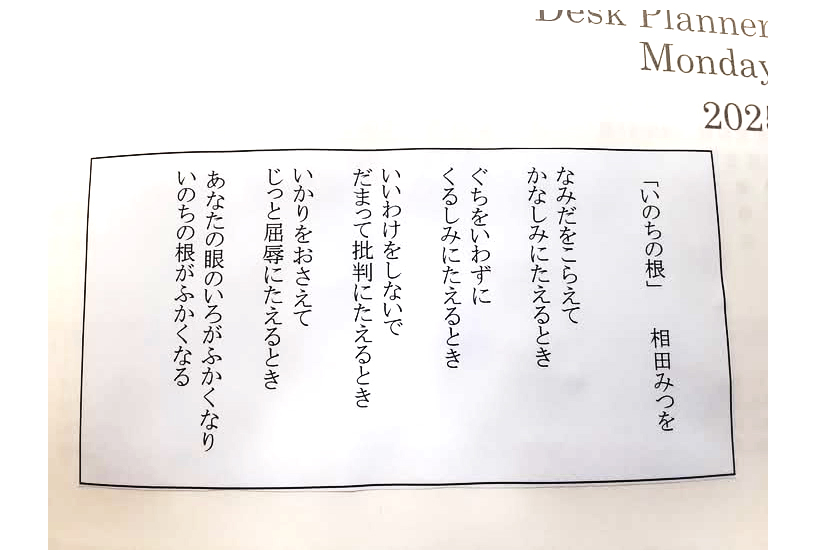 Desk Planner
Monday
202
「いのちの根」　相田みつを
なみだをこらえて
かなしみにたえるとき
ぐちをいわずに
くるしみにたえるとき
いいわけをしないで
だまって批判にたえるとき
いかりをおさえて
じっと屈辱にたえるとき
あなたの眼のいろがふかくなり
いのちの根がふかくなる